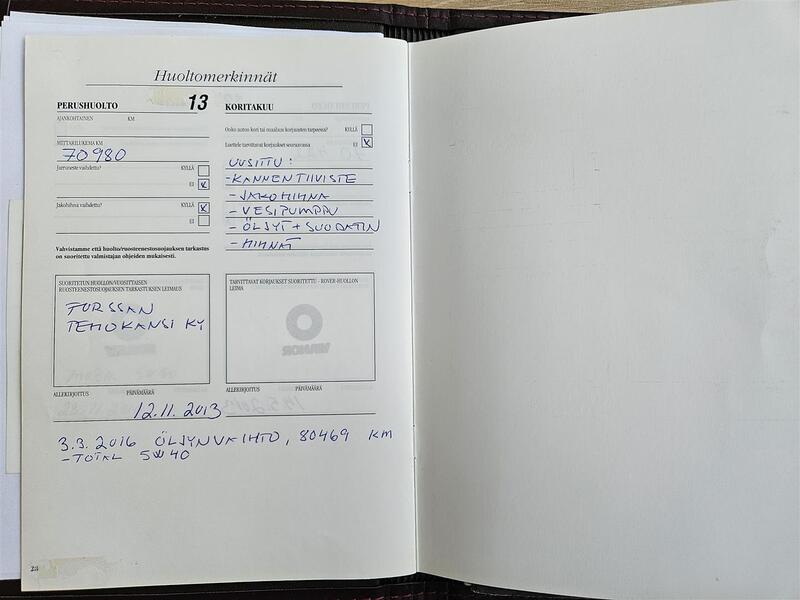 Huoltomerkinnät
PERUSHUOLTO 13
AJANKOHTAINEN KM
MITTARILUKEMA KM
70980
Jarruneste vaihdettu? KYLLÄ
EI x
Jakohihna vaihdettu? KYLLÄ x
EI
Vahvistamme että huolto/ruosteenestosuojauksen tarkastus
on suoritettu valmistajan ohjeiden mukaisesti.
KORITAKUU
Onko auton kori tai maalaus korjausten tarpeessa? KYLLÄ
Luettele tarvittavat korjaukset seuraavassa EI x
UUSITTU:
-KANNENTIIVISTE
-JAKOHIHNA
-VESIPUMPPU
-ÖLJYT + SUODATIN
-HIHNAT
SUORITETUN HUOLLON/VUOSITTAISEN
RUOSTEENESTOSUOJAUKSEN TARKASTUKSEN LEIMAUS
FORSSAN
TEHOKANSI KY
ALLEKIRJOITUS PÄIVÄMÄÄRÄ
TARVITTAVAT KORJAUKSET SUORITETTU - ROVER-HUOLLON
LEIMA
ALLEKIRJOITUS PÄIVÄMÄÄRÄ
12.11.2013
3.3.2016 ÖLJYNVAIHTO, 80469 KM
-TOTAL 5W40
28